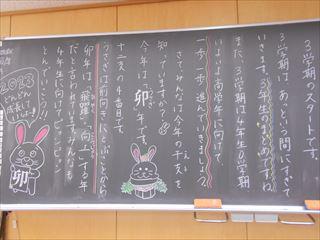 3学期のスタートです。
3学期は、あっという間にすぎて
いきます。3年生のまとめですね。
また、3学期は4年生0学期
いよいよ高学年に向けて
一歩一歩進んでいきましょう。
さてみんなは今年の干支を
知っていますか？
今年は卯年です。
うさぎ
十二支の4番目です。
うさぎは前向きにとぶことから
卯年は「飛躍」「向上」する年
だと言われています。みんなも
4年生に向けてピョンピョン
とんでいこう！
2023
どんどん
成長して
いいよ!!
卯